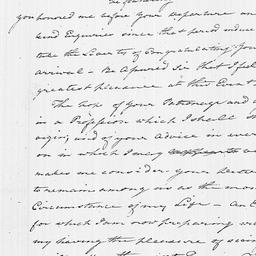 you honored me before your departure an
kind Enquiries since that period induce
take the Liberty of Congratulating you
arrival - Be Assured Sir that I feel
greatest pleasure at this Event
The hope of your Patronage and
in a Profession which I shall
and of your Advice in ever
on in which I may
makes me consider your
to remain among us as the mos
Circumstance of my Life - An
for which I am now preparing
my having the pleasure of seein